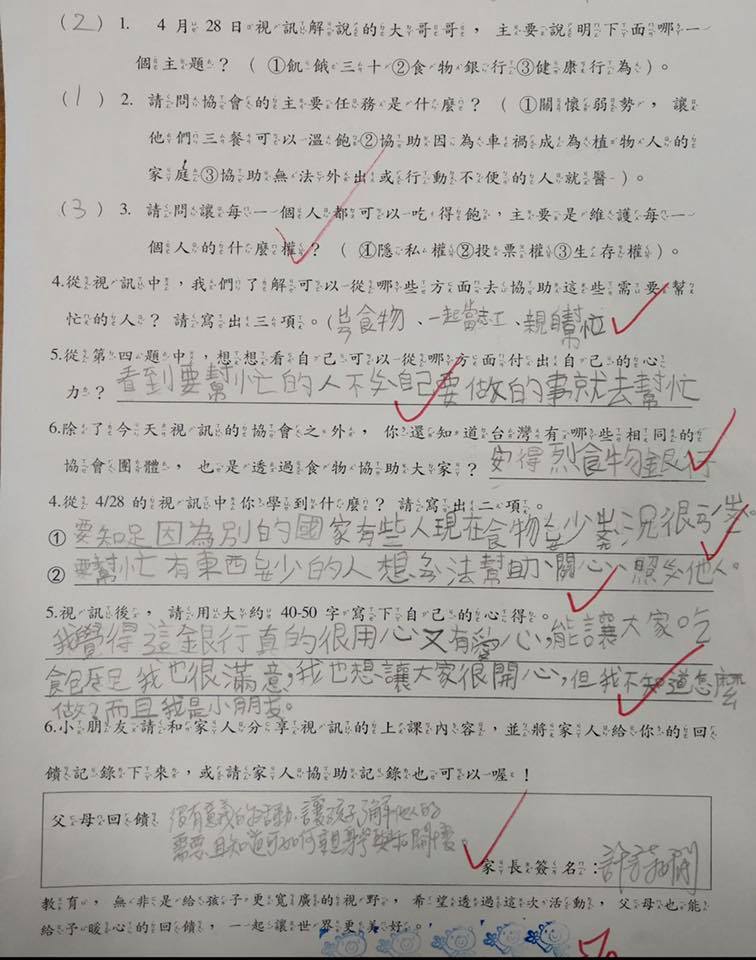 (2) 1. 4月28日視訊解說的大哥哥，主要說明下面哪一
個主題？（①飢餓三十②食物銀行③健康行為）。
(1) 2. 請問協會的主要任務是什麼？（①關懷弱勢，讓
他們三餐可以溫飽②協助因為車禍成為植物人的
家庭③協助無法外出或行動不便的人就醫）。
(3) 3. 請問讓每一個人都可以吃得飽，主要是維護每一
個人的什麼權？（①隱私權②投票權③生存權）。
4.從視訊中，我們了解可以從哪些方面去協助這些需要幫
忙的人？請寫出三項。(食物、一起當志工、親自幫忙
5.從第四題中，想想看自己可以從哪方面付出自己的心
力？看到要幫忙的人不分自己要做的事就去幫忙
6.除了今天視訊的協會之外，你還知道台灣有哪些相同的
協會團體，也是透過食物協助大家？安得烈食物銀行
4.從4/28的視訊中你學到什麼？請寫出二項。
①要知足因為別的國家有些人現在食物缺少狀況很
②要幫忙有東西缺少的人想辦法幫助、關心、照顧他人。
5.視訊後，請用大約40-50字寫下自己的心得。
我覺得這銀行真的很用心又有愛心,能讓大家吃
飽足 我也很滿意,我也想讓大家很開心,但我不知道怎麼
做?而且我是小朋友。
6.小朋友請和家人分享視訊的上課內容，並將家人給你的回
饋記錄下來，或請家人協助記錄也可以喔！
父母回饋 很有意義的活動,讓孩子了解他人的
需要且知道可如何
家長簽名：
教育，無非是給孩子更寬廣的視野，希望透過這次活動，父母也能
給予暖心的回饋，一起讓世界更美好。